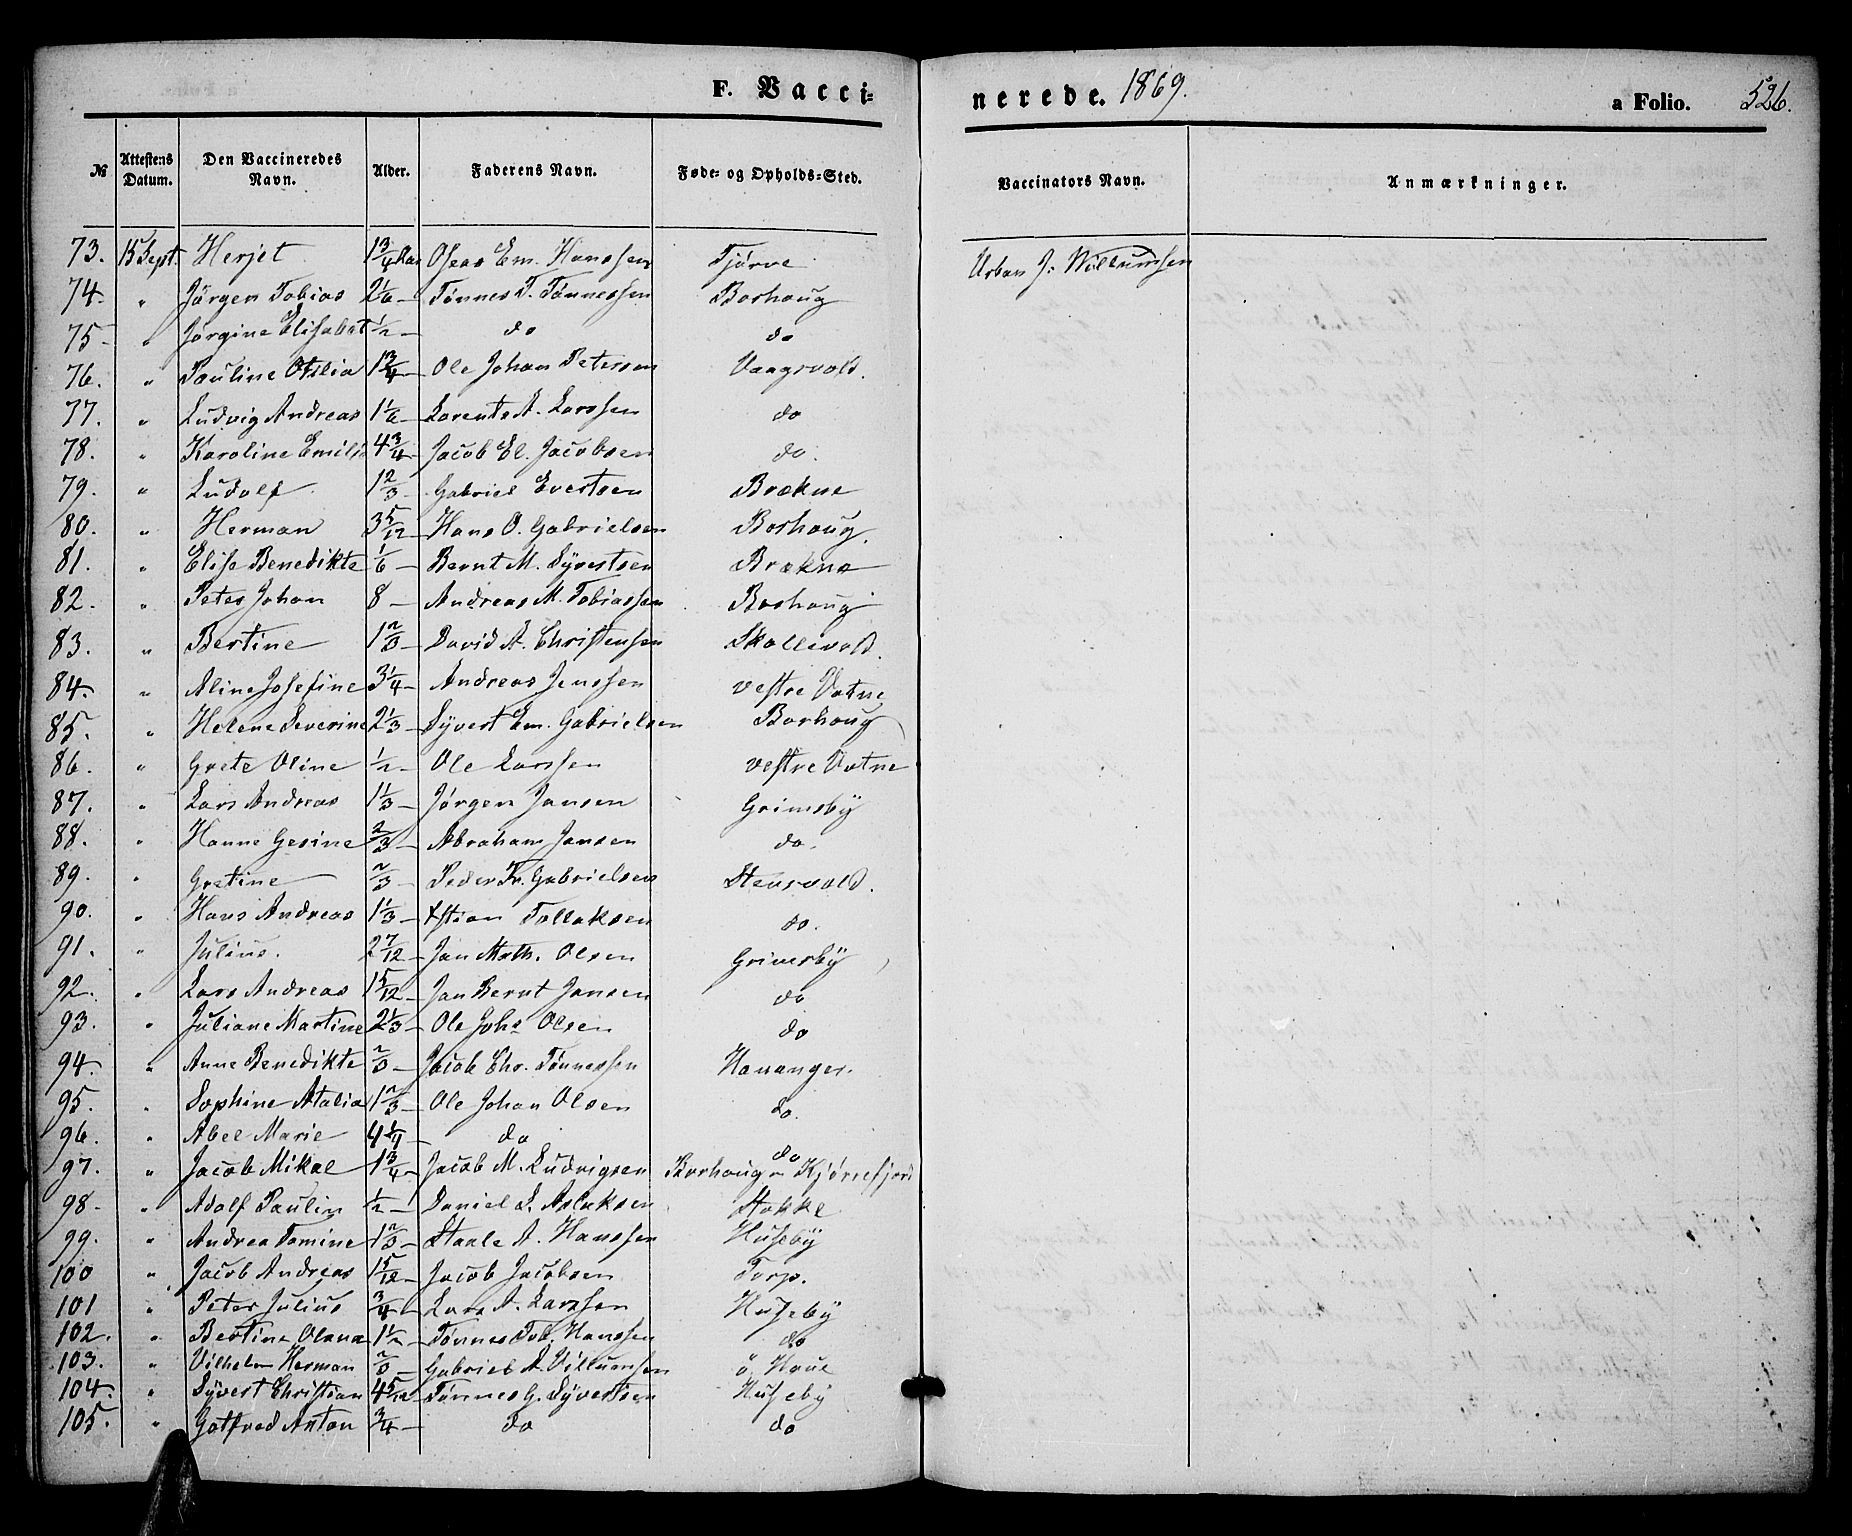 F. Vacci-
nerede. 1869.
a Folio. 526.
№
Attestens Datum.
Den Vaccineredes Navn.
Alder.
Faderens Navn.
Føde- og Opholds-Sted.
Vaccinators Navn.
Anmærkninger.
73. 15 Sept. Herjet 1 3/4 Aar Oseas Em. Hanssen Tjørve Urban J. Willumsen
74. " Jørgen Tobias 2 1/6 — Tønnes T. Tønnessen Borhaug
75 " Jørgine Elisabet 1/2 — do do
76. " Pauline Otilia 1 3/4 — Ole Johan Petersen Vaagsvold.
77. " Ludvig Andreas 1 1/6 — Lorents A. Larssen do
78. " Karoline Emilie 4 3/4 — Jacob El. Jacobsen do.
79. " Ludolf 1 2/3 — Gabriel Evertsen Brækne
80. " Herman 3 5/12 — Hans O. Gabrielsen Borhaug.
81. " Elise Benedikte 1/6 — Bernt M. Syvertsen Brækne
82. " Peter Johan 8 — Andreas M. Tobiassen Borhaug
83. " Bertine 1 2/3 — David A. Christensen Skollevold.
84. " Aline Josefine 3 1/4 — Andreas Jenssen vestre Vatne
85. " Helene Severine 2 1/3 — Syvert Em. Gabrielsen Borhaug
86. " Grete Oline 1/2 — Ole Larssen vestre Vatne
87. " Lars Andreas 1 1/3 — Jørgen Jansen Grimsby
88. " Hanne Gesine 2/3 — Abraham Jansen do.
89. " Gretine 2/3 — Peder Fr. Gabrielsen Stensvold.
90. " Hans Andreas 1 1/3 — Xstian Tollaksen do.
91. " Julius. 2 7/12 — Jan Math. Olsen Grimsby
92. " Lars Andreas 1 5/12 — Jan Bernt Jansen do
93. " Juliane Martine 2 1/3 — Ole Johs Olsen do
94. " Anne Benedikte 2/3 — Jacob Chr. Tønnessen Hananger.
95. " Sophine Atalia 1 2/3 — Ole Johan Olsen do.
96. " Abel Marie 4 1/4 — do do
97. " Jacob Mikal 1 3/4 — Jacob M. Ludvigsen Borhaug Kjørrefjord
98. " Adolf Paulin 1/2 — Daniel S. Aslaksen Stokke
99. " Andrea Tomine 1 2/3 — Staale A. Hanssen Huseby
100 " Jacob Andreas 1 5/12 — Jacob Jacobsen Torp.
101 " Peter Julius 3/4 — Lars A. Larssen Huseby
102. " Bertine Olana 1 1/2 — Tønnes Tob. Hanssen do
103. " Vilhelm Herman 2/3 — Gabriel A. Villumsen ö. Haue
104. " Syvert Christian 4 5/12 — Tønnes G. Syvertsen Huseby
105. " Gotfred Anton 3/4 — do do